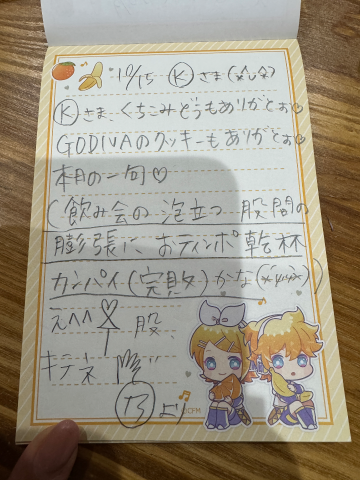 10/15 Ⓚさま(☆∪☆)
Ⓚさまーくちこみどうもありがとぉ♡
GODIVAのクッキーもありがとぉ♡
本月の一句♡
(飲み会の泡立つ股間の
膨張に おティンポ乾杯
カンパイ(完敗)かな
えへへ 股
キテネ
より
CFM